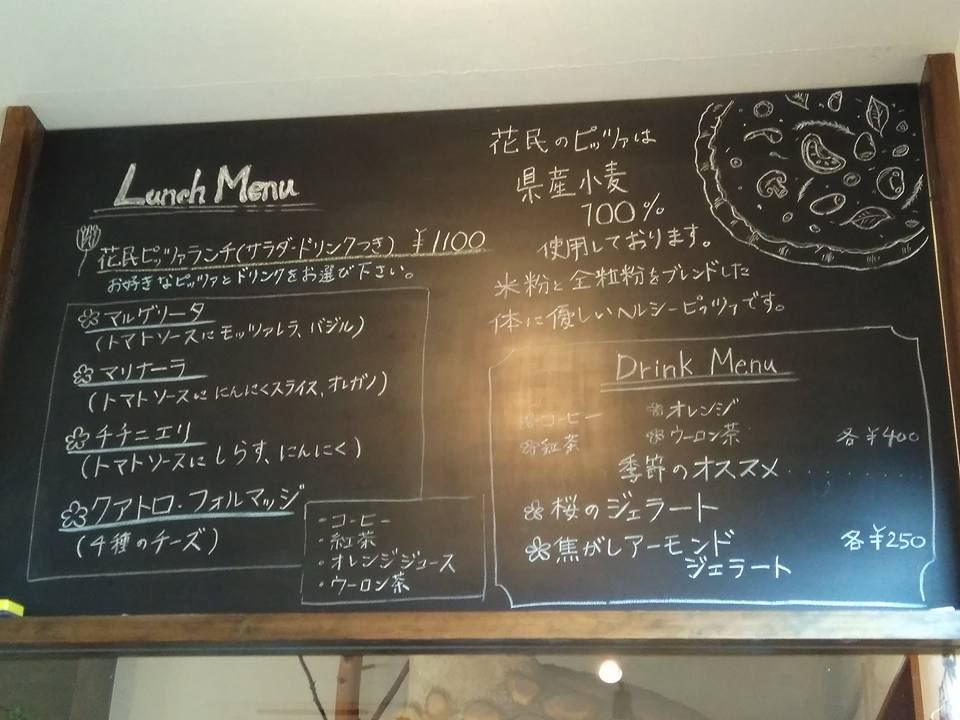 Lunch Menu
花民ピッツァランチ(サラダ・ドリンクつき) ¥1100
お好きなピッツァとドリンクをお選び下さい。
マルゲリータ
(トマトソースにモッツァレラ、バジル)
マリナーラ
(トマトソースににんにくスライス、オレガノ)
チチニエリ
(トマトソースにしらす、にんにく)
クアトロ・フォルマッジ
(4種のチーズ)
・コーヒー
・紅茶
・オレンジジュース
・ウーロン茶
花民のピッツァは
県産小麦
100%
使用しております。
米粉と全粒粉をブレンドした
体に優しいヘルシーピッツァです。
Drink Menu
コーヒー オレンジ
紅茶 ウーロン茶 各¥400
季節のオススメ
桜のジェラート
焦がしアーモンド 各¥250
ジェラート